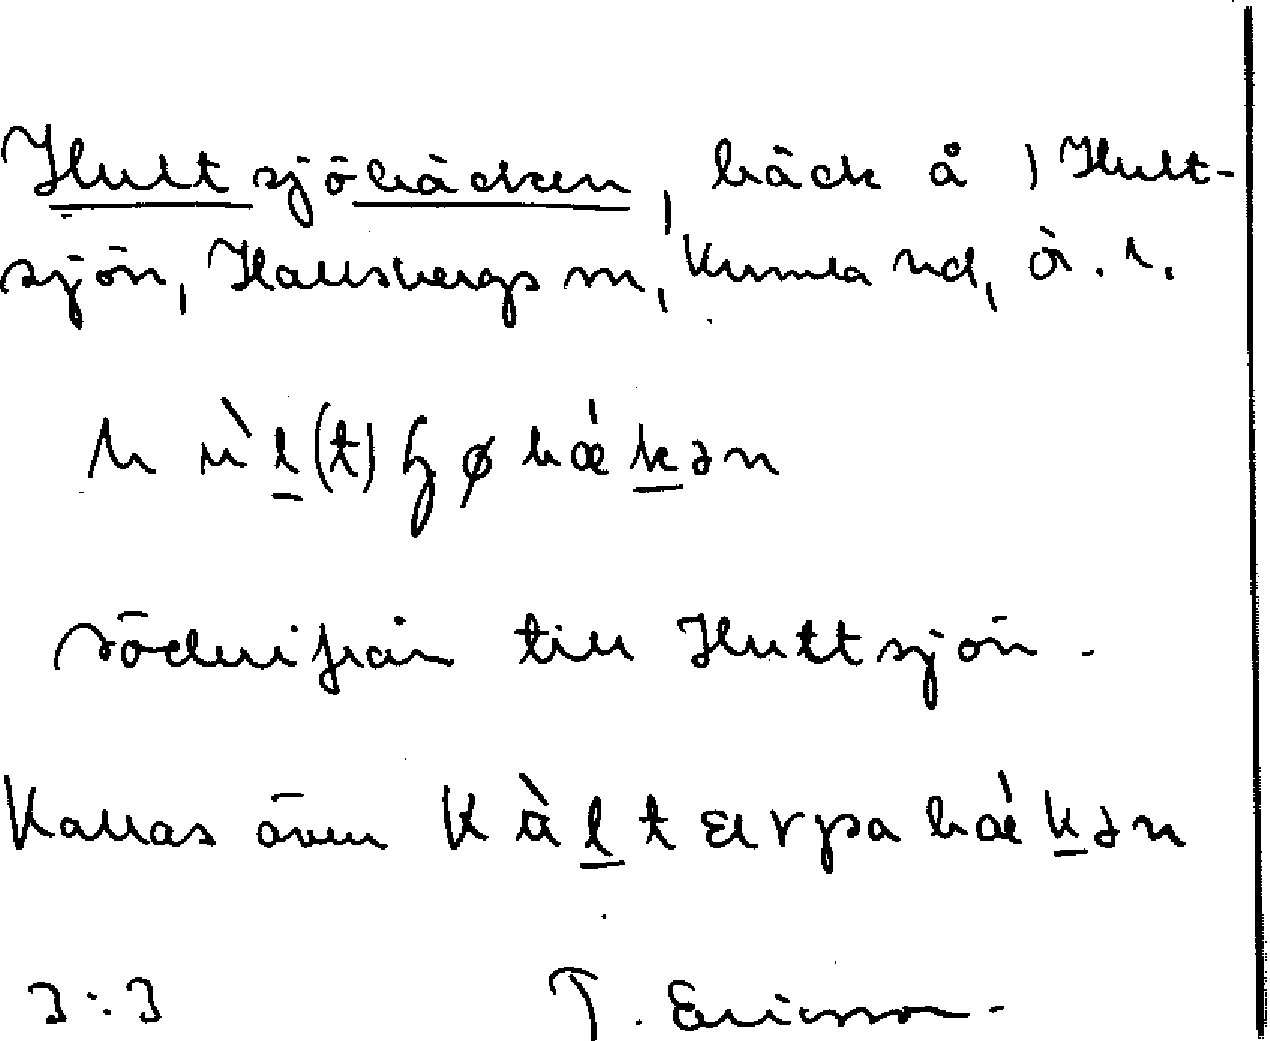 Hultsjöbäcken, bäck å, Hult-
sjön, Hallsbergs sn, Kumla hd, Ör. l.
hùl(t)ʃøbǽkən
söderifrån till Hultsjön.
Kallas även kàltærpabǽkən
3:3 T. Ericsson